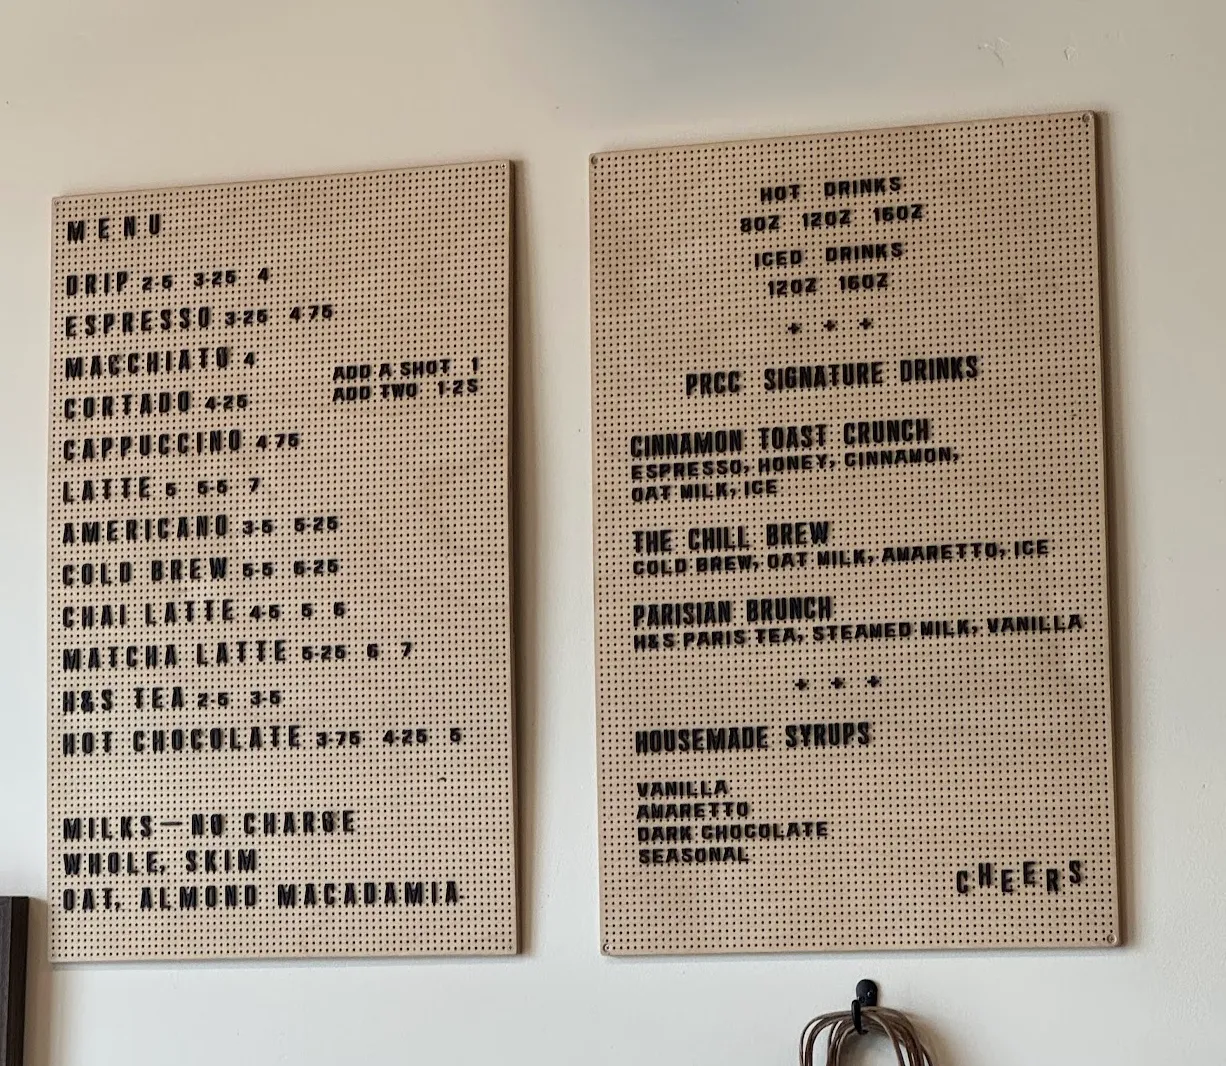 MENU
DRIP 2-5 3-25 4
ESPRESSO 3-25 4-75
MACCHIATO 4
ADD A SHOT 1
ADD TWO 1-25
CORTADO 4-25
CAPPUCCINO 4-75
LATTE 5 5-5 7
AMERICANO 3-5 5-25
COLD BREW 5-5 6-25
CHAI LATTE 4-5 5 6
MATCHA LATTE 5-25 6 7
H&S TEA 2-5 3-5
HOT CHOCOLATE 3-75 4-25 5
MILKS—NO CHARGE
WHOLE, SKIM
OAT, ALMOND MACADAMIA
HOT DRINKS
8OZ 12OZ 16OZ
ICED DRINKS
12OZ 16OZ
+ + +
PRCC SIGNATURE DRINKS
CINNAMON TOAST CRUNCH
ESPRESSO, HONEY, CINNAMON,
OAT MILK, ICE
THE CHILL BREW
COLD BREW, OAT MILK, AMARETTO, ICE
PARISIAN BRUNCH
H&S PARIS TEA, STEAMED MILK, VANILLA
+ + +
HOUSEMADE SYRUPS
VANILLA
AMARETTO
DARK CHOCOLATE
SEASONAL
CHEERS